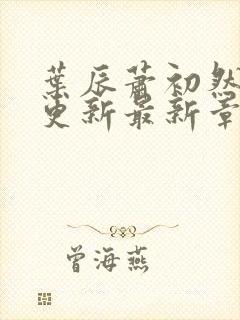 葉辰蕭初然
更新最新章
曾海燕